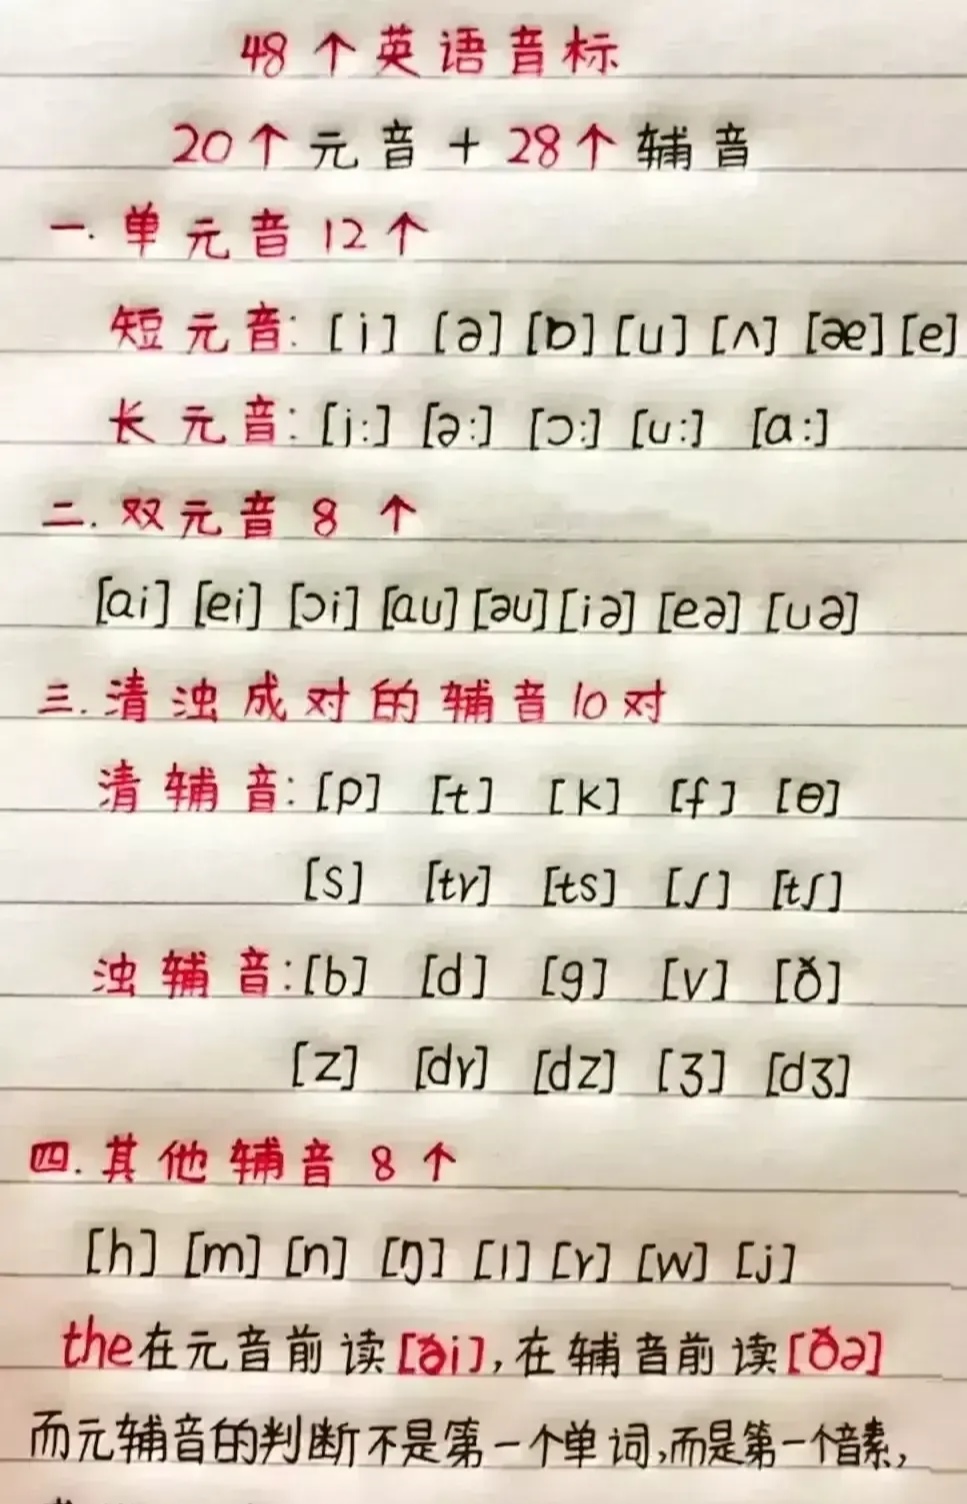 48个英语音标
20个元音+28个辅音
一.单元音12个
短元音:[i] [ə] [ɒ] [u] [ʌ] [æ] [e]
长元音:[i:] [ə:] [ɔ:] [u:] [ɑ:]
二.双元音8个
[ai] [ei] [ɔi] [au] [əu] [iə] [eə] [uə]
三.清浊成对的辅音10对
清辅音:[p] [t] [k] [f] [θ]
[s] [tr] [ts] [ʃ] [tʃ]
浊辅音:[b] [d] [g] [v] [ð]
[z] [dr] [dz] [ʒ] [dʒ]
四.其他辅音8个
[h] [m] [n] [ŋ] [l] [r] [w] [j]
the在元音前读[ði],在辅音前读[ðə]
而元辅音的判断不是第一个单词,而是第一个音素,